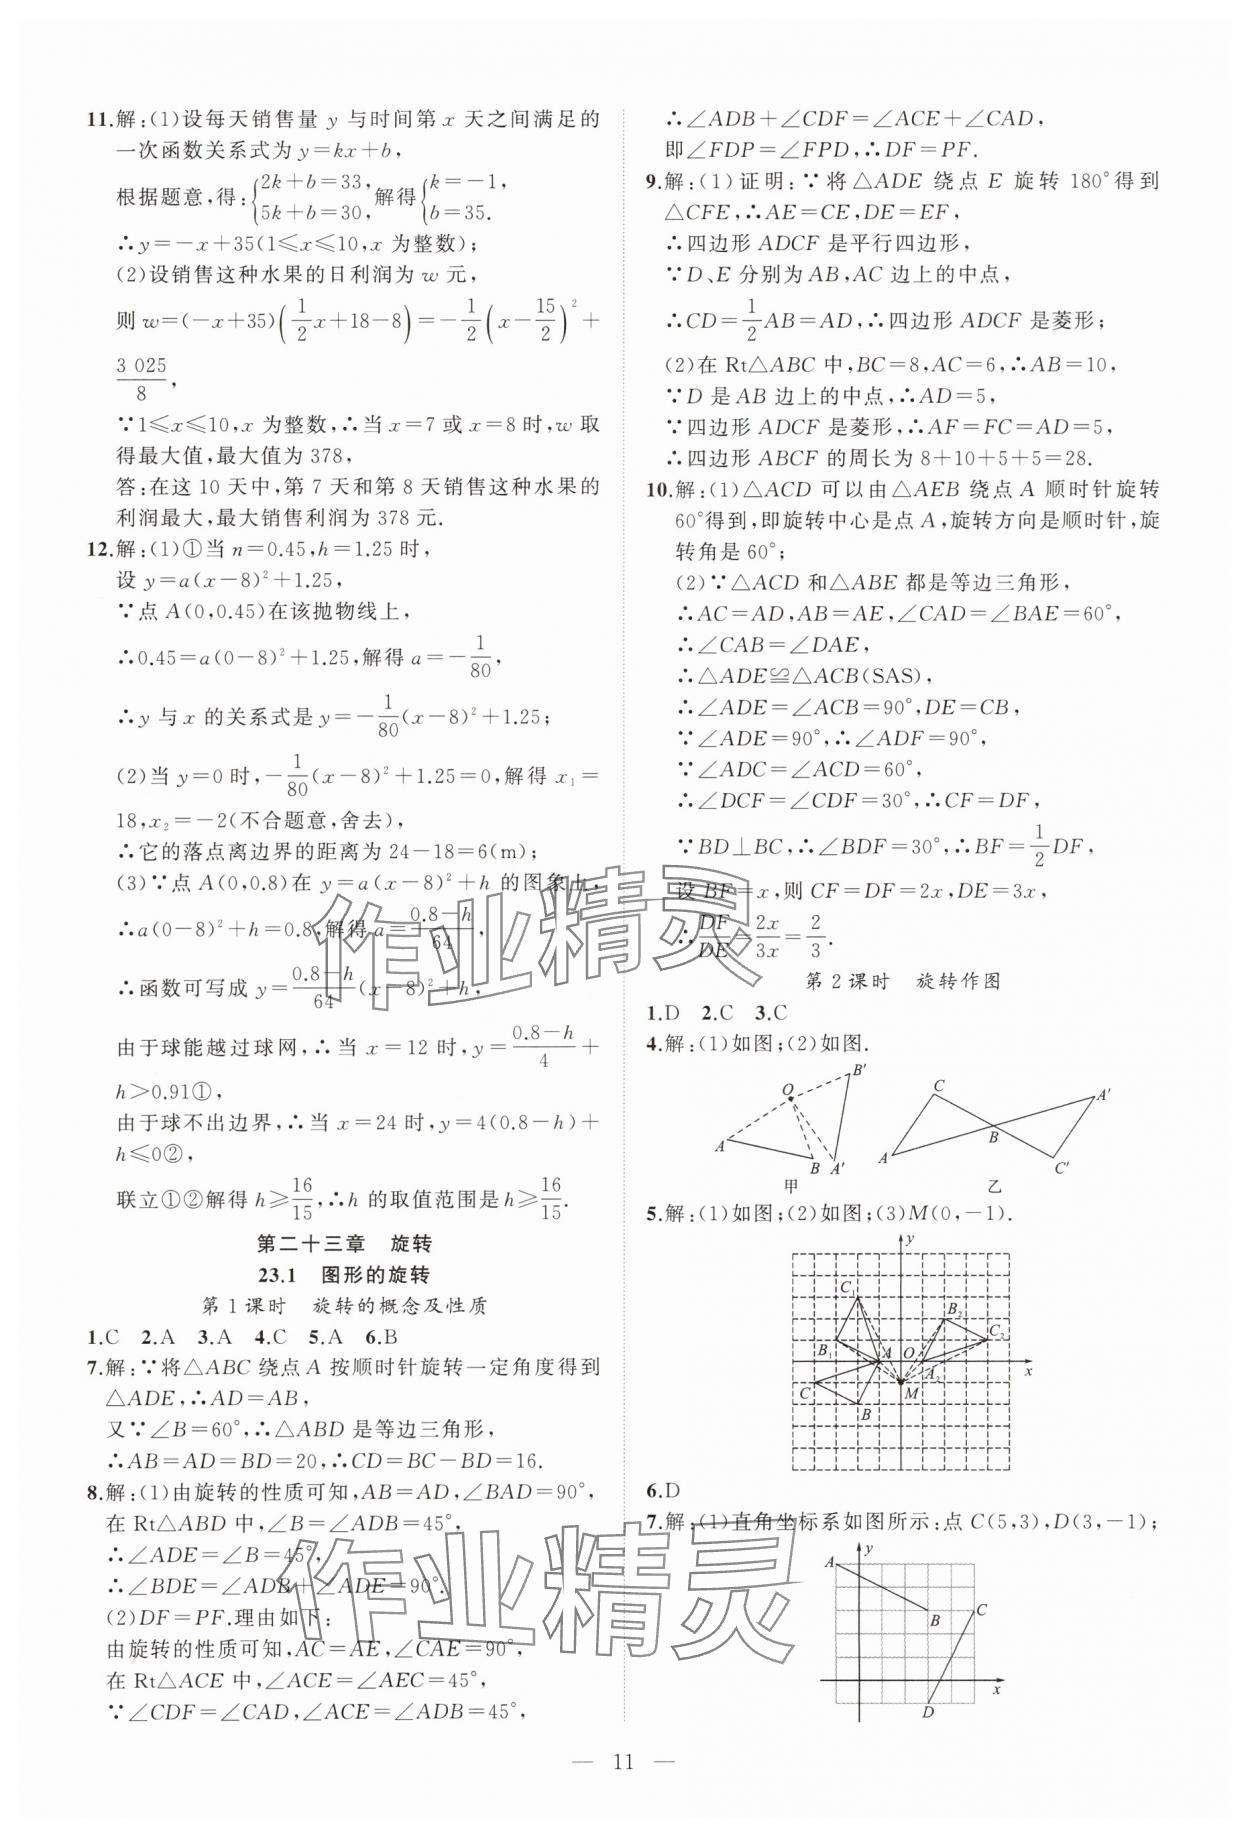 11.解:(1)设每天销售量 y 与时间第 x 天之间满足的
一次函数关系式为 y=kx+b,
根据题意,得:{2k+b=33, 5k+b=30, 解得{k=-1, b=35.
∴y=-x+35(1≤x≤10,x 为整数);
(2)设销售这种水果的日利润为 w 元,
则 w=(-x+35)(1/2x+18-8)=-1/2(x-15/2)²+
3 025/8,
∵1≤x≤10,x 为整数,∴当 x=7 或 x=8 时,w 取
得最大值,最大值为 378,
答:在这 10 天中,第 7 天和第 8 天销售这种水果的
利润最大,最大销售利润为 378 元.
12.解:(1)①当 n=0.45,h=1.25 时,
设 y=a(x-8)²+1.25,
∵点 A(0,0.45)在该抛物线上,
∴0.45=a(0-8)²+1.25,解得 a=-1/80,
∴y 与 x 的关系式是 y=-1/80(x-8)²+1.25;
(2)当 y=0 时,-1/80(x-8)²+1.25=0,解得 x₁=
18,x₂=-2(不合题意,舍去),
∴它的落点离边界的距离为 24-18=6(m);
(3)∵点 A(0,0.8)在 y=a(x-8)²+h 的图象上,
∴a(0-8)²+h=0.8,解得 a=0.8-h/64,
∴函数可写成 y=0.8-h/64(x-8)²+h,
由于球能越过球网,∴当 x=12 时,y=0.8-h/4+
h>0.91①,
由于球不出边界,∴当 x=24 时,y=4(0.8-h)+
h≤0②,
联立①②解得 h≥16/15,∴h 的取值范围是 h≥16/15.
第二十三章 旋转
23.1 图形的旋转
第 1 课时 旋转的概念及性质
1.C 2.A 3.A 4.C 5.A 6.B
7.解:∵将△ABC 绕点 A 按顺时针旋转一定角度得到
△ADE,∴AD=AB,
又∵∠B=60°,∴△ABD 是等边三角形,
∴AB=AD=BD=20,∴CD=BC-BD=16.
8.解:(1)由旋转的性质可知,AB=AD,∠BAD=90°,
在 Rt△ABD 中,∠B=∠ADB=45°,
∴∠ADE=∠B=45°,
∴∠BDE=∠ADB+∠ADE=90°.
(2)DF=PF.理由如下:
由旋转的性质可知,AC=AE,∠CAE=90°,
在 Rt△ACE 中,∠ACE=∠AEC=45°,
∵∠CDF=∠CAD,∠ACE=∠ADB=45°,
∴∠ADB+∠CDF=∠ACE+∠CAD,
即∠FDP=∠FPD,∴DF=PF.
9.解:(1)证明:∵将△ADE 绕点 E 旋转 180°得到
△CFE,∴AE=CE,DE=EF,
∴四边形 ADCF 是平行四边形,
∵D、E 分别为 AB,AC 边上的中点,
∴CD=1/2AB=AD,∴四边形 ADCF 是菱形;
(2)在 Rt△ABC 中,BC=8,AC=6,∴AB=10,
∵D 是 AB 边上的中点,∴AD=5,
∵四边形 ADCF 是菱形,∴AF=FC=AD=5,
∴四边形 ABCF 的周长为 8+10+5+5=28.
10.解:(1)△ACD 可以由△AEB 绕点 A 顺时针旋转
60°得到,即旋转中心是点 A,旋转方向是顺时针,旋
转角是 60°;
(2)∵△ACD 和△ABE 都是等边三角形,
∴AC=AD,AB=AE,∠CAD=∠BAE=60°,
∴∠CAB=∠DAE,
∴△ADE≌△ACB(SAS),
∴∠ADE=∠ACB=90°,DE=CB,
∵∠ADE=90°,∴∠ADF=90°,
∵∠ADC=∠ACD=60°,
∴∠DCF=∠CDF=30°,∴CF=DF,
∵BD⊥BC,∴∠BDF=30°,∴BF=1/2DF,
设 BF=x,则 CF=DF=2x,DE=3x,
∴DF/DE=2x/3x=2/3.
第 2 课时 旋转作图
1.D 2.C 3.C
4.解:(1)如图;(2)如图.
O B' A B A' 甲
C A' A B C' 乙
5.解:(1)如图;(2)如图;(3)M(0,-1).
y C₁ B₂ C₂ B₁ A O A₂ x C M B
6.D
7.解:(1)直角坐标系如图所示:点 C(5,3),D(3,-1);
A y B C x D
— 11 —
作业精灵
作业精灵